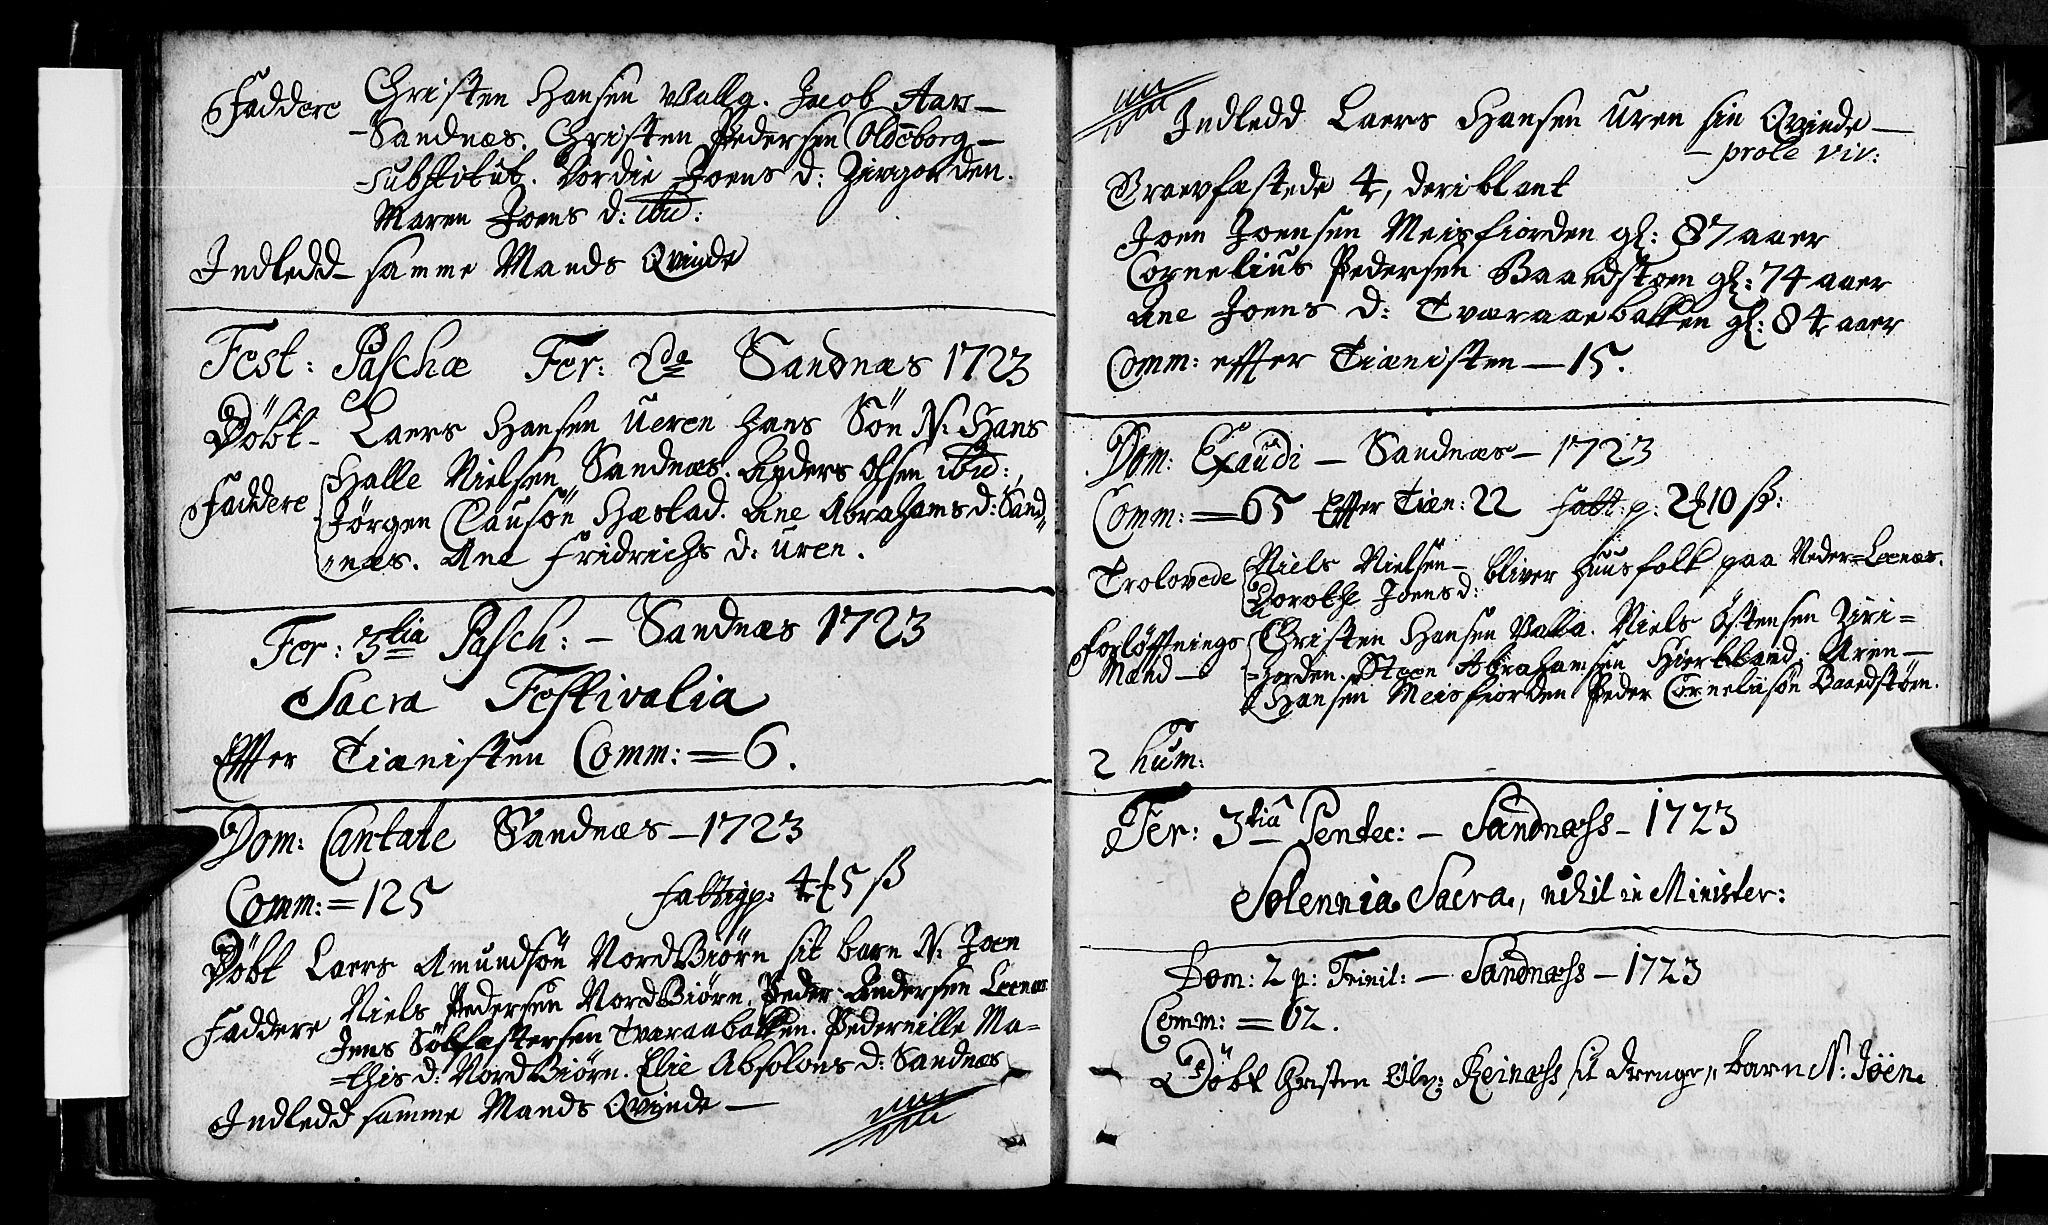 Faddere Christen Hansen Valla. Jacob Aar-
-Sandnæs. Christen Pedersen Oldeborg-
-substitut. Vordie Joens d: Zirigorden.
Maren Joens d: ibid:
Indledd samme Mands Qvinde
Fest: Paschæ Fer: 2da Sandnæs 1723
Döbt- Laers Hansen Ueren hans Sön N: Hans
Faddere Halle Nielsen Sandnæs. Anders Olsen ibid:,
Jörgen Clausön Hæstad. Ane Abrahams d: Sand„
„næs. Ane Fridrichs d: Uren.
Fer: 3tia Pasch: - Sandnæs 1723
Sacra Festivalia
Effter Tienisten Comm: = 6.
Dom: Cantate Sandnæs - 1723
Comm: = 125 fattigp: 4 5 ß
Döbt Laers Amundsön NordBiörn sit barn N: Joen
Faddere Niels Pedersen NordBiörn. Peder Andersen Leenæs
Jens Sölfæstersen Tværaabakken. Pedernille Ma=
=this d: NordBiörn. Elie Absolons d: Sandnæs
Indledd samme Mands Qvinde -
Indledd Laers Hansen Uren sin Qvinde -
- prole viv:
Graevfæstede 4, deriblant
Joen Joensen Meisfiorden gl: 87 aaer
Cornelius Pedersen Baadstoen gl: 74 aaer
Ane Joens d: Tværaaebakken gl: 84 aaer
Comm: effter Tienisten - 15.
Dom: Exaudi - Sandnæs - 1723
Comm: = 65 Effter Tien: 22 fatt: p: 2 10 ß:
Trolovede Niels Nielsen - bliver huusfolk paa Neder=Leenæs.
Dorothe Joens d:
Forlöffnings Christen Hansen Valla. Niels Östensen Ziri=
Mænd - =gorden. Steen Abrahamsen Hierteland. Aren -
Hansen Meisfiorden Peder Corneliusön Baaedstöen.
2 hum:
Fer: 3tia Pentec: - Sandnæss - 1723
Solennia Sacra, nihil in Minister:
Dom: 2 p: Trinit: - Sandnæss - 1723
Comm: = 62.
Döbt Christen Reinæss sit drenge„barn N: Jöen.